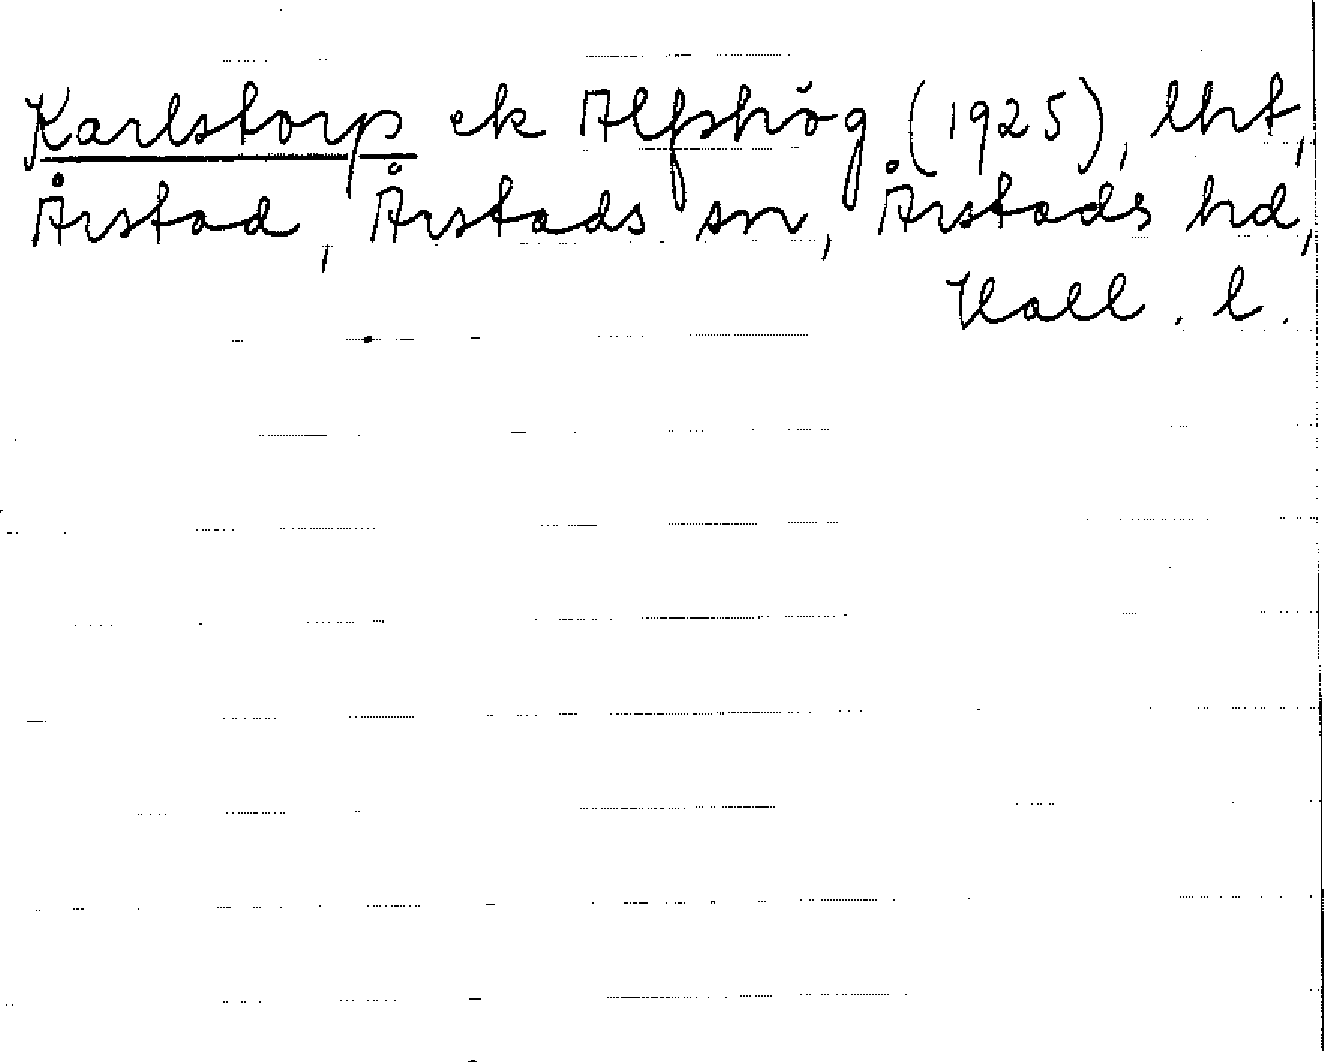 Karlstorp ek Alfshög (1925), lht,
Årstad, Årstads sn, Årstads hd,
Hall. l.